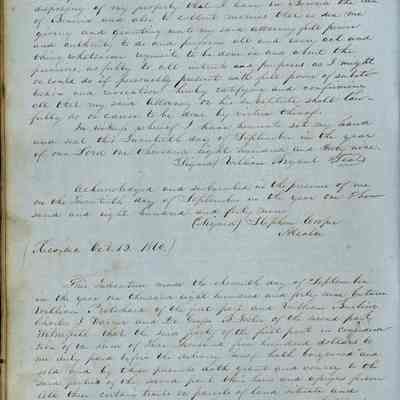 disposing of my property that I have in
and also to collect monies that is due me
giving and granting unto my said attorney full power
and authority to do and perform all and every act and
thing whatsoever requisite to be done in and about the
premises, as fully to all intents and purposes as I might
or could do if personally present with full power of substi-
tution and revocation, hereby ratifying and confirming
all that my said Attorney or his substitute shall law-
fully do or cause to be done by virtue thereof.
In witness whereof I have hereunto set my hand
and seal the Twentieth day of September in the year
of our Lord one thousand eight hundred and forty nine.
(Signed) William Bryant (Seal)
Acknowledged and subscribed in the presence of me
on the Twentieth day of September in the year one thou-
sand and eight hundred and forty nine
(Signed) Stephen Cooper
Alcalde
(Recorded Oct. 13. 1849.)
This Indenture made the eleventh day of September
in the year one thousand eight hundred and forty nine, between
William Pritchard of the first part and William
Charles and of the second part
Witnesseth that the said party of the first part in considera-
tion of the sum of five hundred dollars to
me duly paid before the delivery hereof hath bargained and
sold and by these presents doth grant and convey to the
said parties of the second part their heirs and assigns forever
all those certain tracts or parcels of land situate and